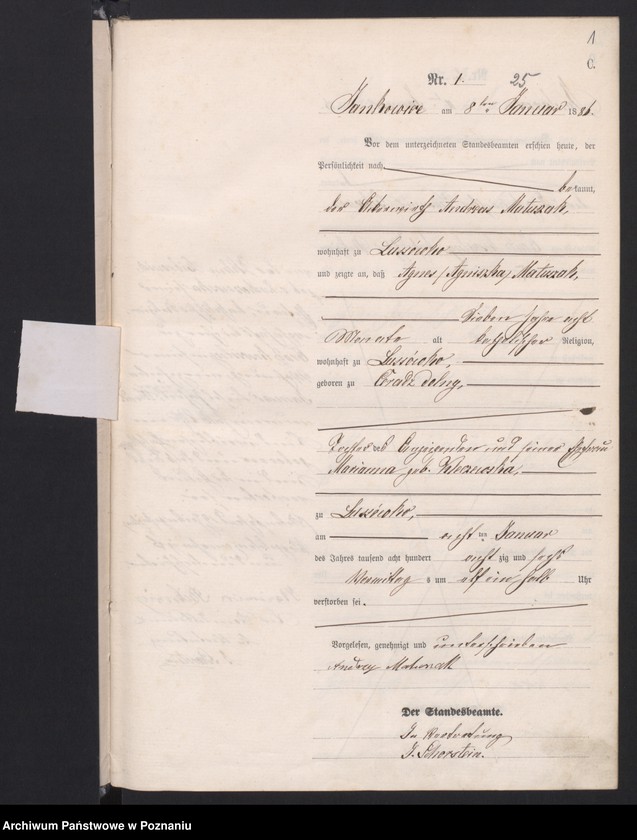 1
C.
Nr. 1. 25
Jankowice am 8ten Januar 1886.
Vor dem unterzeichneten Standesbeamten erschien heute, der
Persönlichkeit nach
bekannt,
der Andreas Matuszak,
wohnhaft zu Lussówko
und zeigte an, daß Agnes /Agnieszka/ Matuszak,
Sieben Jahre acht
Monate alt katholischer Religion,
wohnhaft zu Lussówko,
geboren zu Ceradz dolny,
Tochter des Anzeigenden und seiner Ehefrau
Marianna geb.
zu Lussówko,
am achten Januar
des Jahres tausend acht hundert acht zig und sechs
Vormittags um elf ein halb Uhr
verstorben sei.
Vorgelesen, genehmigt und unterschrieben
Andrzej Matuszak
Der Standesbeamte.
In Vertretung
J. Schorstein.
Archiwum Państwowe w Poznaniu